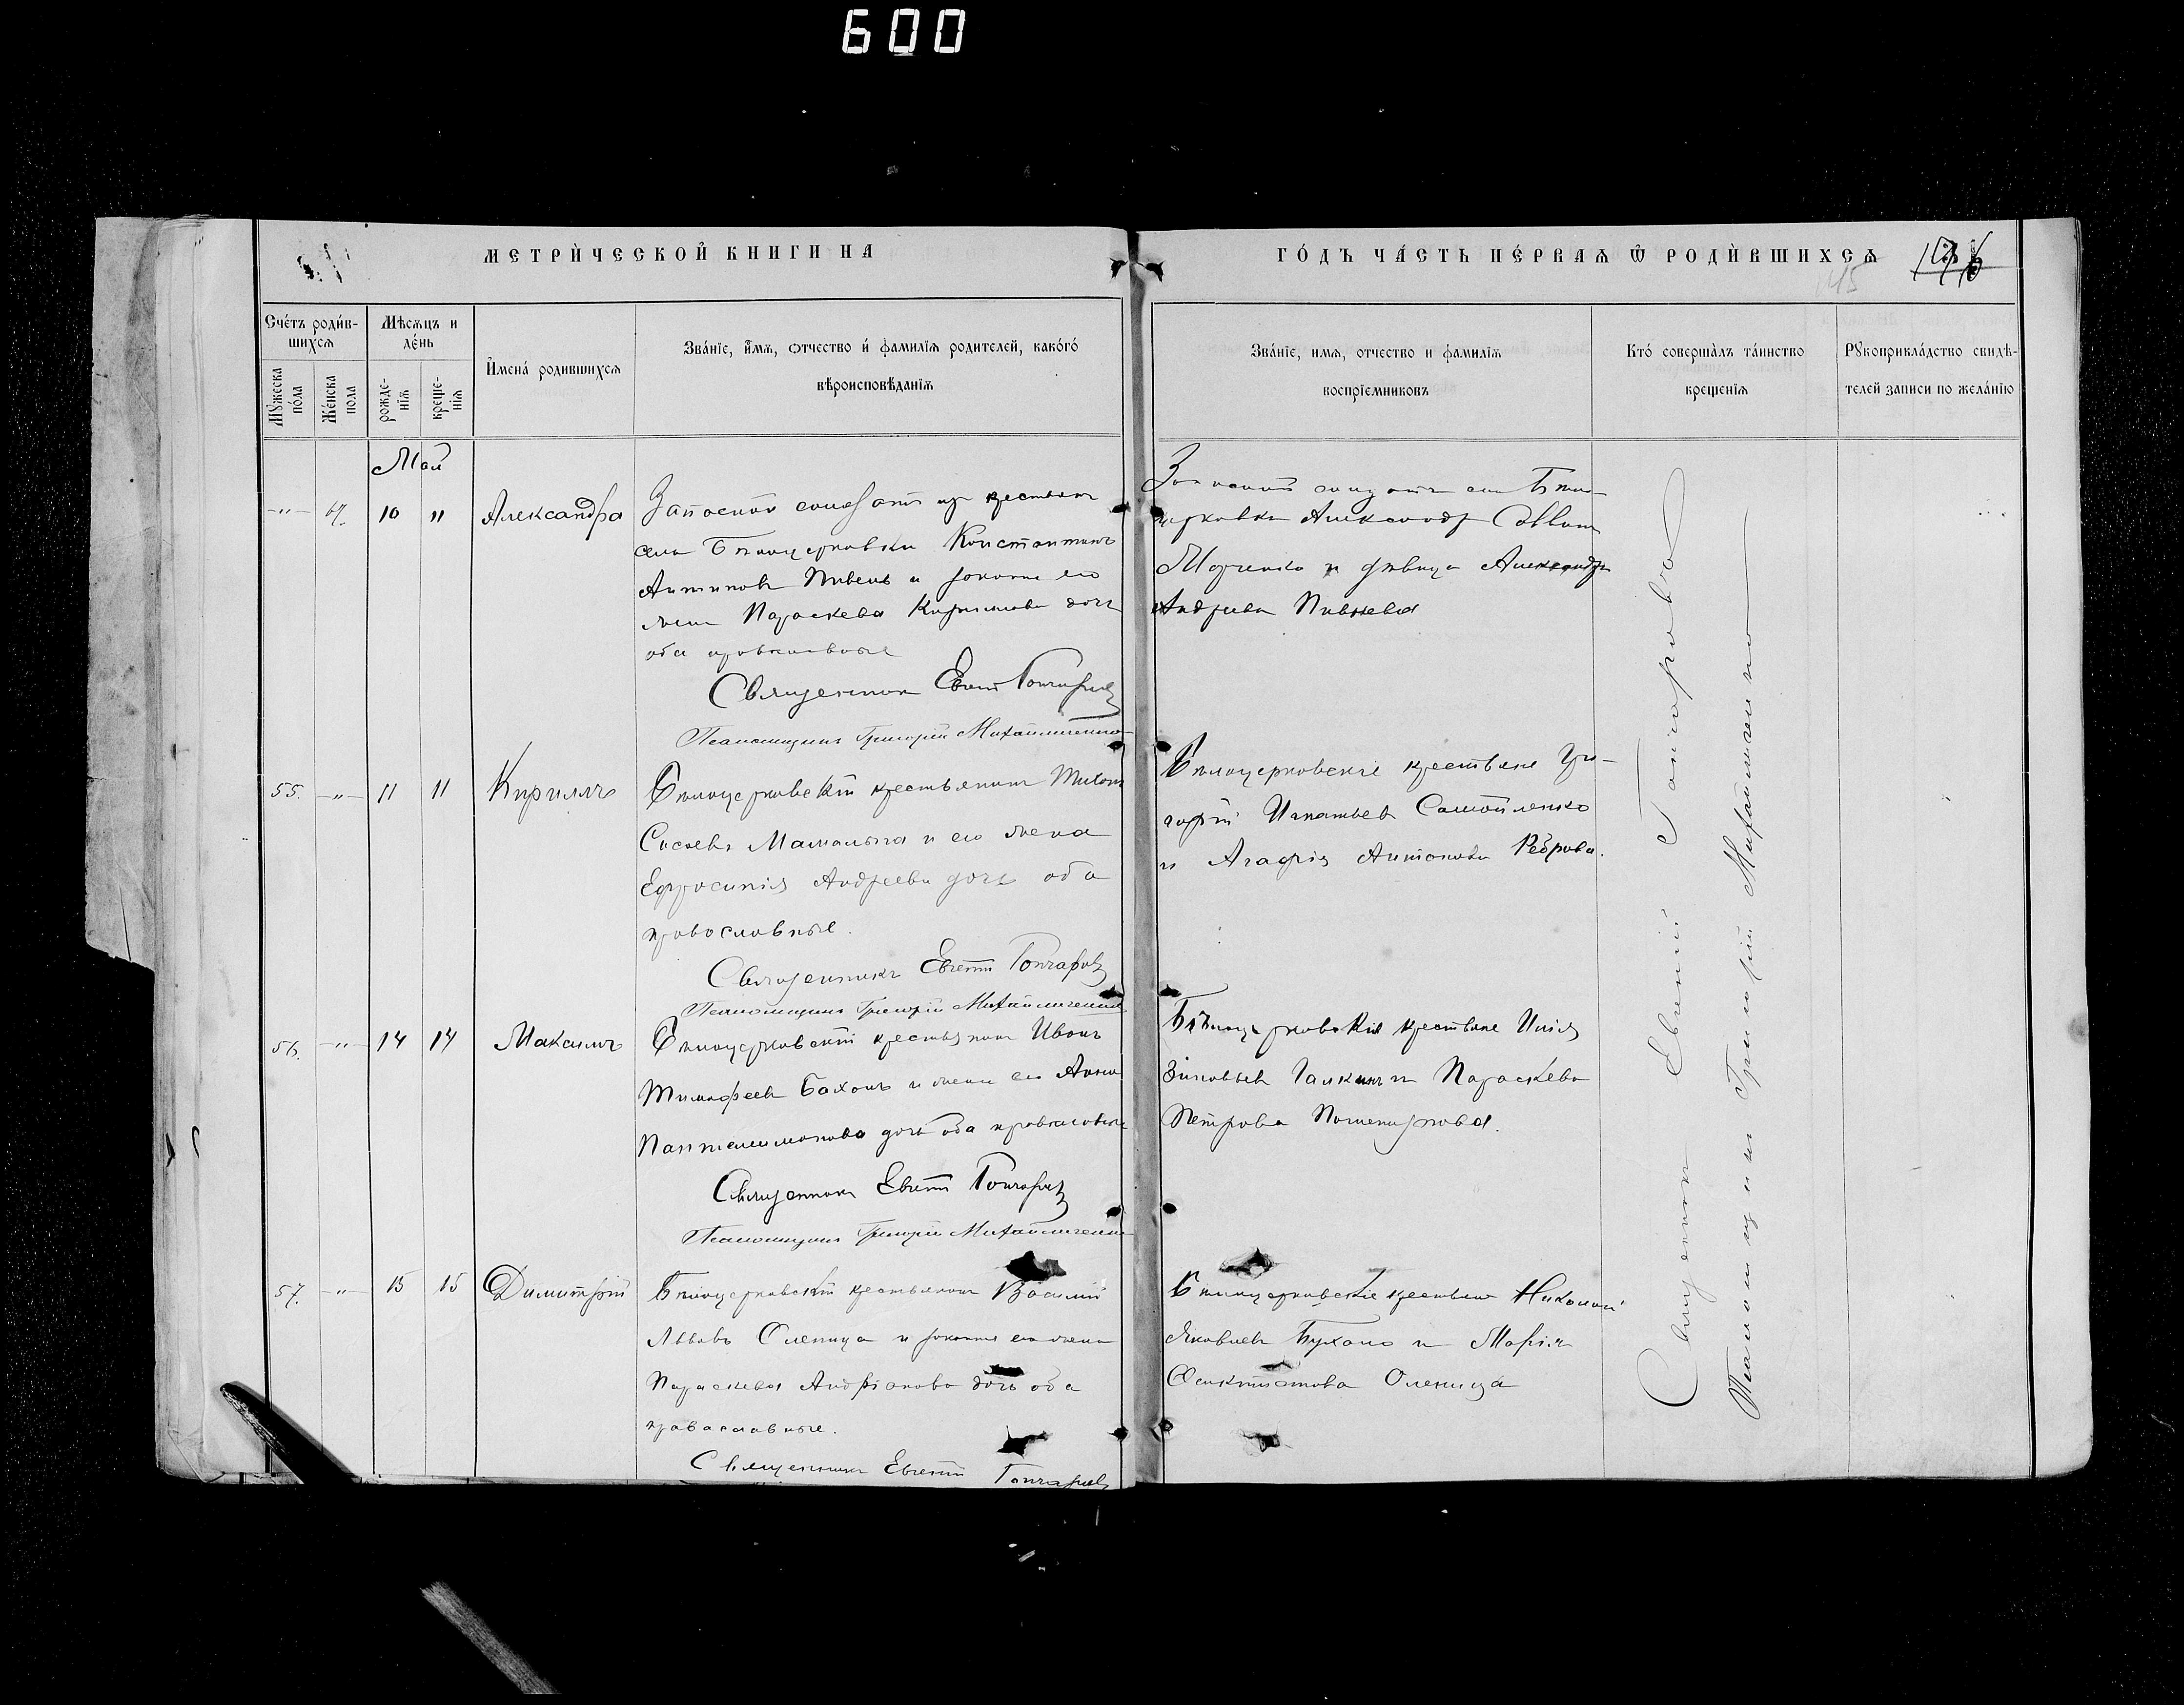 600
МЕТРИЧЕСКОЙ КНИГИ НА
ГОДЪ ЧАСТЬ ПЕРВАЯ Ѡ РОДИВШИХСЯ
145
Счетъ родив-
шихся
Мужеска
пола
Женска
пола
Мѣсяцъ и
день
рожде-
нія
креще-
нія
Имена родившихся
Званіе, имя, отчество и фамилія родителей, какого
вѣроисповѣданія
Званіе, имя, отчество и фамилія
воспріемниковъ
Кто совершалъ таинство
крещенія
Рукоприкладство свидѣ-
телей записи по желанію
Май
-"- 10 11 Александра
Запасной солдатъ из крестьянъ
села Бѣлоцерковки Константинъ
Антиповъ Пивень и законная его
жена Параскева Кириллова дочь
оба православные
Священникъ Евгеній Гончаровъ
Псаломщикъ Григорій Михайличенко
Запасной солдатъ села Бѣло-
церковки Александръ Саввинъ
и дѣвица Александра
Андреева Пивнева
55. -"- 11 11 Кириллъ
Бѣлоцерковскій крестьянинъ Тихонъ
Сисоевъ Мамалыга и его жена
Ефросинія Андреева дочь оба
православные.
Священникъ Евгеній Гончаровъ
Псаломщикъ Григорій Михайличенко
Бѣлоцерковскіе крестьяне Гри-
горій Игнатьевъ Самойленко
и Агафія Антонова Реброва.
56. -"- 14 14 Максимъ
Бѣлоцерковскій крестьянинъ Иванъ
Тимофеевъ Бахонъ и жена его Анна
Пантелимонова дочь оба православные
Священникъ Евгеній Гончаровъ
Псаломщикъ Григорій Михайличенко
Бѣлоцерковскія крестьяне Илія
Зиновьевъ Галкинъ и Параскева
Петрова
57. -"- 15 15 Димитрій
Бѣлоцерковскій крестьянинъ Василій
Львовъ Оленица и законная его жена
Параскева Андріанова дочь оба
православные.
Священникъ Евгеній Гончаровъ
Бѣлоцерковскіе крестьяне Николай
Яковлевъ Бухало и Марія
Феоктистова Оленица
Священникъ Евгеній Гончаровъ
Псаломщикъ Григорій Михайличенко